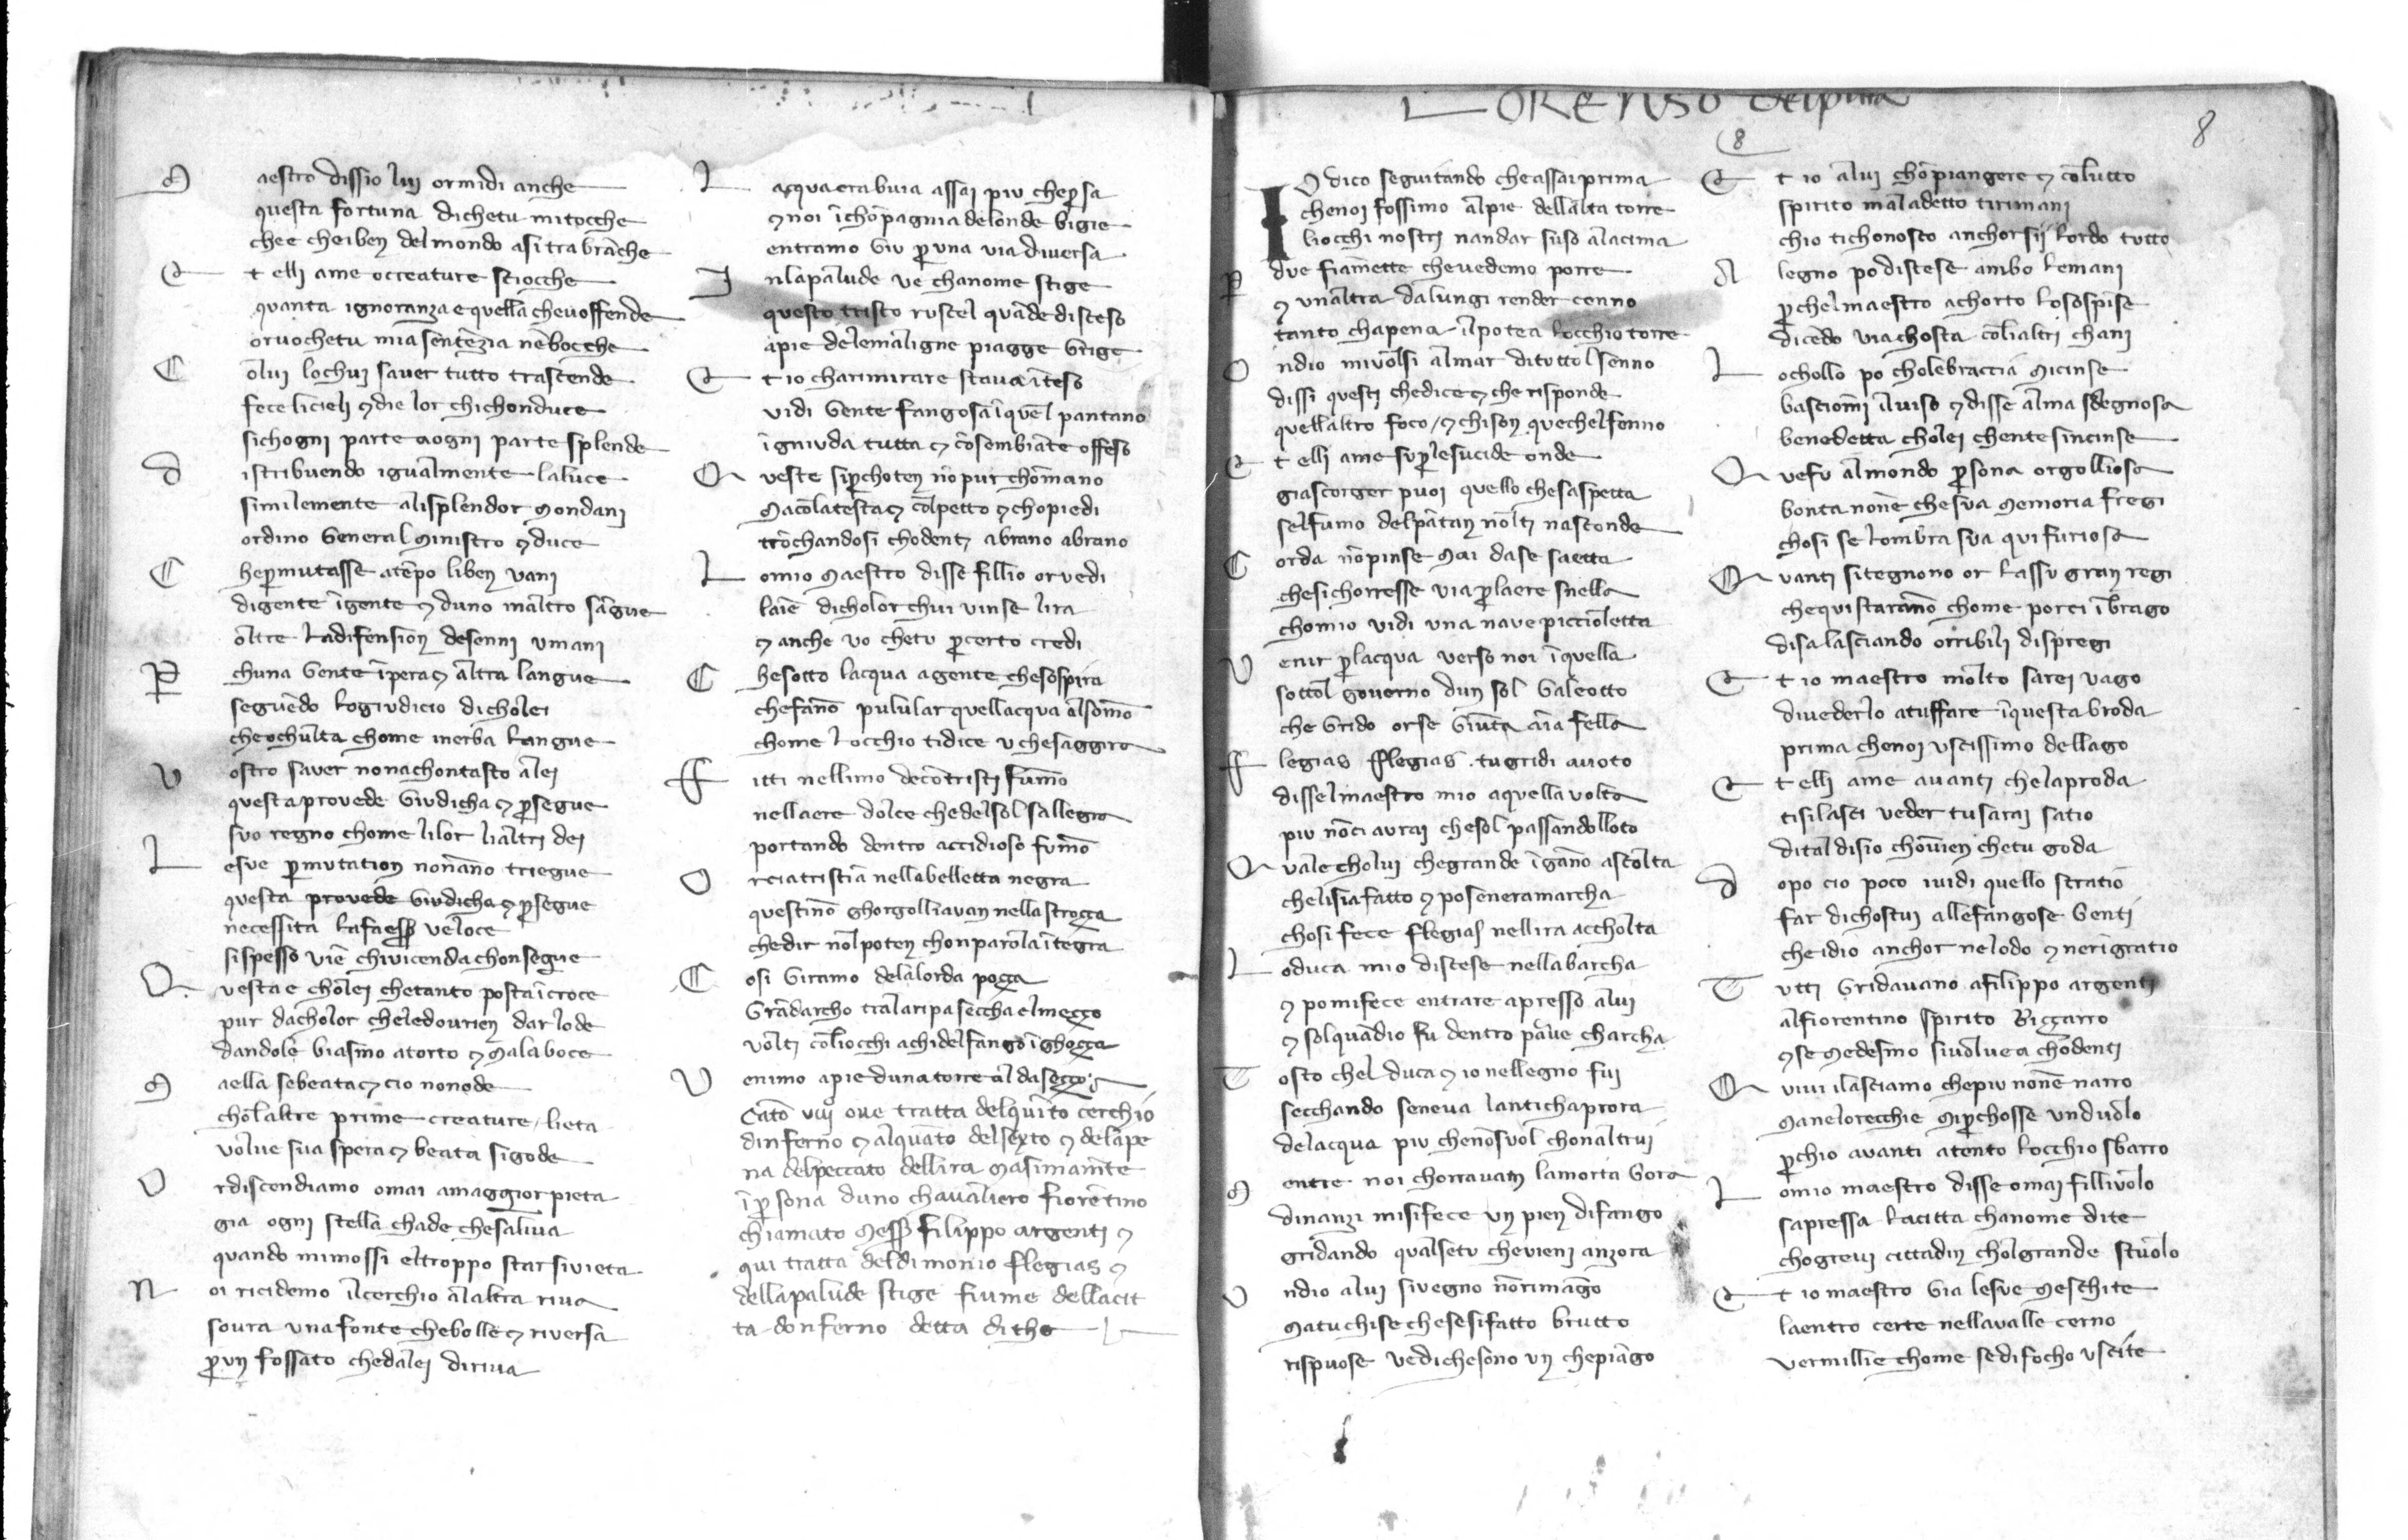 M aestro dissio lui ormidi anche
questa fortuna dichetu mitocche
chee cheiben delmondo asi tra brāche
E t elli ame occreature sciocche
quanta ignoranza e quella chevoffende
orvochetu mia sentēzia nēbocche
C olui lochui saver tutto trascende
fece licieli ⁊ die lor chichonduce
sichogni parte aogni parte splende
d istribuendo igualmente laluce
similemente alisplendor mondani
ordino general ministro ⁊ duce
C hep̱mutasse atēpo liben vani
digente īgente ⁊ duno inaltro sāngue
oltre ladifension desenni umani
P chuna gente īpera ⁊ altra langue
seguēdo logiudicio dicholei
cheochulta chome inerba langue
V ostro saver nonachontasto alei
questa provede giudicha ⁊ p̱segue
suo regno chome lilor lialtri dei
L esue p̱mutation nonāno triegue
questa provede giudicha ⁊ p̱segue
necessita lafaess̱ veloce
sispesso viē chivicenda chonsegue
Q uesta e cholei chetanto posta īcroce
pur dacholor cheledourien dar lode
dandole biasmo atorto ⁊ malaboce
M aella sebeata ⁊ cio nonode
cholaltre prime creature lieta
volue sua spera ⁊ beata sigode
O rdiscendiamo omai amaggior pieta
gia ogni stella chade chesaliua
quando mimossi eltroppo star sivieta
N oi ricidemo ilcerchio alaltra riua
soura una fonte chebolle ⁊ riversa
p̱ un fossato chedalei diriua
L acqua era buia assai piu chep̱sa
⁊ noi īchōpagnia delonde bigie
entramo giu p̱ una via diversa
I nlapalude ve chanome stige
questo tristo ruscel quāde disceso
apie delemaligne piagge grige
E t io charimirare stava īteso
vidi gente fangosa īquel pantano
ignuda tutta ⁊ cōsembiāte offeso
Q ueste sip̱choten nō pur chōmano
macolatesta ⁊ colpetto ⁊ chopiedi
trōchandosi chodenti abrano abrano
L omio maestro disse fillio orvedi
laīe dicholor chui vinse lira
⁊ anche vo chetu p̱certo credi
C hesotto lacqua agente chesospira
chefāno pulular quellacqua alsomō
chome locchio tidice u chesaggira
F itti nellimo decōtristi fumō
nellaere dolce chedelsol sallegra
portando dentro accidioso fumō
O rciatristia nellabelletta negra
questinō ghorgolliavan nellastrozza
chedir nolpoten chonparola ītegra
C osi giramo delalorda pozza
grādarcho tralaripa seccha elmezzo
volti coliocchi achidelfango īghozza
V enimo apie duna torre al dasezzo
Cātō viij ove tratta delquīto cerchio
dinferno ⁊ alquāto delsexto ⁊ delape
na delpeccato dellira masimamēte
īp̱sona duno chavaliero fiorētino
chiamato mess̱ filippo argenti ⁊
qui tratta deldimonio flegias ⁊
dellapalude stige fiume dellacit
ta donferno detta dithe
LORENSO
8
8
I O dico seguitando cheassai prima
chenoi fossimo alpie dellalta torre
liocchi nostri nandar suso alacima
P due fiamette chevedemo porre
⁊ unaltra dalungi render cenno
tanto chapena ilpotea locchio torre
O ndio mivolsi almar ditutto l senno
dissi questi chedice ⁊ che risponde
quellaltro foco / ⁊ chison quechelfenno
E t elli ame sup̱lesucide onde
giascorger puoi quello chesaspetta
selfumo delpātan nolti nasconde
C orda nōpinse mai dase saetta
chesichorresse via p̱laere snella
chomio vidi una nave picciolletta
V enir p̱lacqua verso noi īquella
sottol governo dun sol galeotto
che grido orse giūta aīa fella
F legias flegias tu gridi avoto
disselmaestro mio aquella volta
piu nōci avrai chesol passandolloto
Q uale cholui chegrande īgāno ascolta
chelisiafatto ⁊ poseneramarcha
chosi fece flegias nellira accholta
L oduca mio discese nellabarcha
⁊ pomifece entrare apresso alui
⁊ solquādio fu dentro parve charcha
T osto chel duca ⁊ io nellegno fui
secchando seneva lantichaprora
delacqua piu chenōsuol chonaltrui
M entre noi chorravam lamorta gora
dinanzi misifece un pien difango
gridando qualsetu chevieni anzora
O ndio alui sivegno nōrimāgo
matuchise chesesifatto brutto
rispuose vedichesono un chepiāgo
E t io alui chōpiangere ⁊ cōlutto
spirito maladetto tirimani
chio tichonosco anchorsij lordo tutto
A legno po distese ambo lemani
p̱chelmaestro achorto lososspise
dicēdo via chosta coliialtri chani
L ochollo po cholebraccia micinse
basciomi iluiso ⁊ disse alma sdegnosa
benedetta cholei chentesincinse
Q uefu almondo p̱sona orgolliosa
bonta nonē chesua memoria fregi
chosi se lombra sua qui furiosa
Q uanti sitegnono or lassu gran regi
chequistarāno chome porci ībrago
disa lasciando orribili dispregi
E t io maestro molto sarei vago
divederlo atuffare īquesta broda
prima chenoi uscissimo dellago
E t elli ame avanti chelaproda
tisilasci veder tusarai satio
dital disio chōvien chetu goda
d opo cio poco ividi quello stratio
far dichostui allefangose genti
cheidio anchor nelodo ⁊ nerigratio
T utti gridavano afilippo argenti
alfiorentino spirito bizzarro
⁊se medesimo sivolvea chodenti
Q uivi ilasciamo chepiu nonē narro
manelorecchie mip̱chosse unduolo
p̱chio avanti atento locchio sbarro
L omio maestro disse omai fillivolo
sapressa lacitta chanome dite
chogrevi cittadin cholgrande stuolo
E t io maestro gia lesue meschite
laentro certe nellavalle cerno
vermillie chome sedifocho uscite